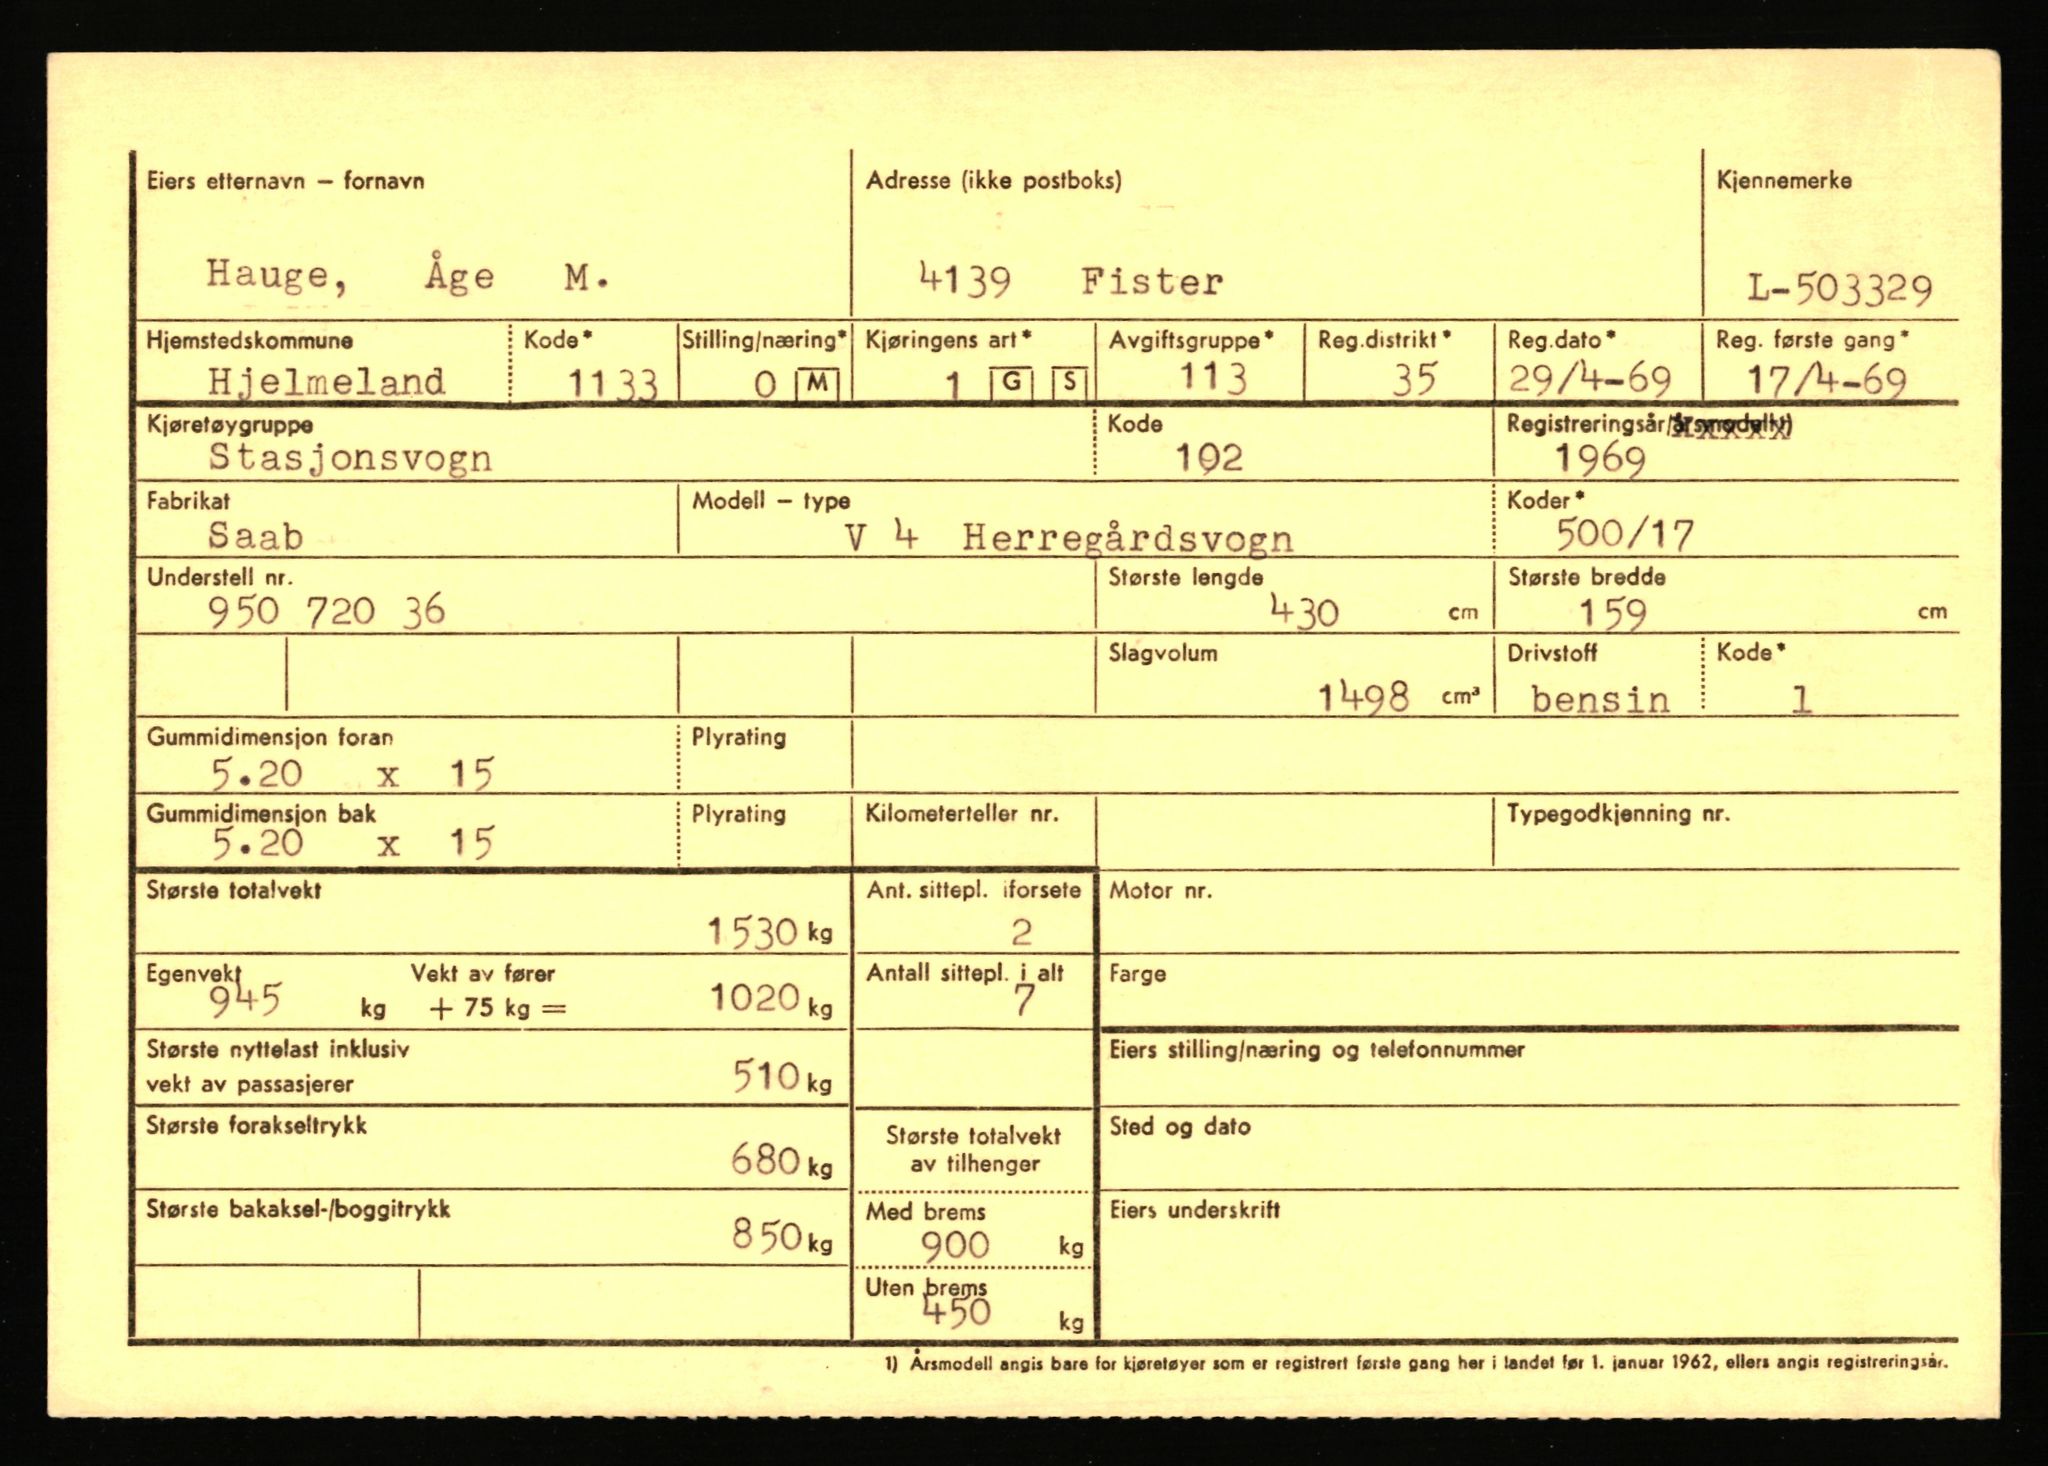 Eiers etternavn — fornavn Adresse (ikke postboks) Kjennemerke
Hauge, Åge M. 4139 Fister L-503329
Hjemstedskommune Kode* Stilling/næring* Kjøringens art* Avgiftsgruppe* Reg.distrikt* Reg.dato* Reg. første gang*
Hjelmeland 1133 0 M 1 G S 113 35 29/4-69 17/4-69
Kjøretøygruppe Kode Registreringsår/årsmodell 1)
Stasjonsvogn 192 1969
Fabrikat Modell — type Koder*
Saab V 4 Herregårdsvogn 500/17
Understell nr. Største lengde Største bredde
950 720 36 430 cm 159 cm
Slagvolum Drivstoff Kode*
1498 cm³ bensin 1
Gummidimensjon foran Plyrating
5.20 x 15
Gummidimensjon bak Plyrating Kilometerteller nr. Typegodkjenning nr.
5.20 x 15
Største totalvekt Ant. sittepl. i forsete Motor nr.
1530 kg 2
Egenvekt Vekt av fører Antall sittepl. i alt Farge
945 kg + 75 kg = 1020 kg 7
Største nyttelast inklusiv Eiers stilling/næring og telefonnummer
vekt av passasjerer 510 kg
Største forakseltrykk Største totalvekt Sted og dato
680 kg av tilhenger
Største bakaksel-/boggitrykk Med brems Eiers underskrift
850 kg 900 kg
Uten brems
450 kg
1) Årsmodell angis bare for kjøretøyer som er registrert første gang her i landet før 1. januar 1962, ellers angis registreringsår.